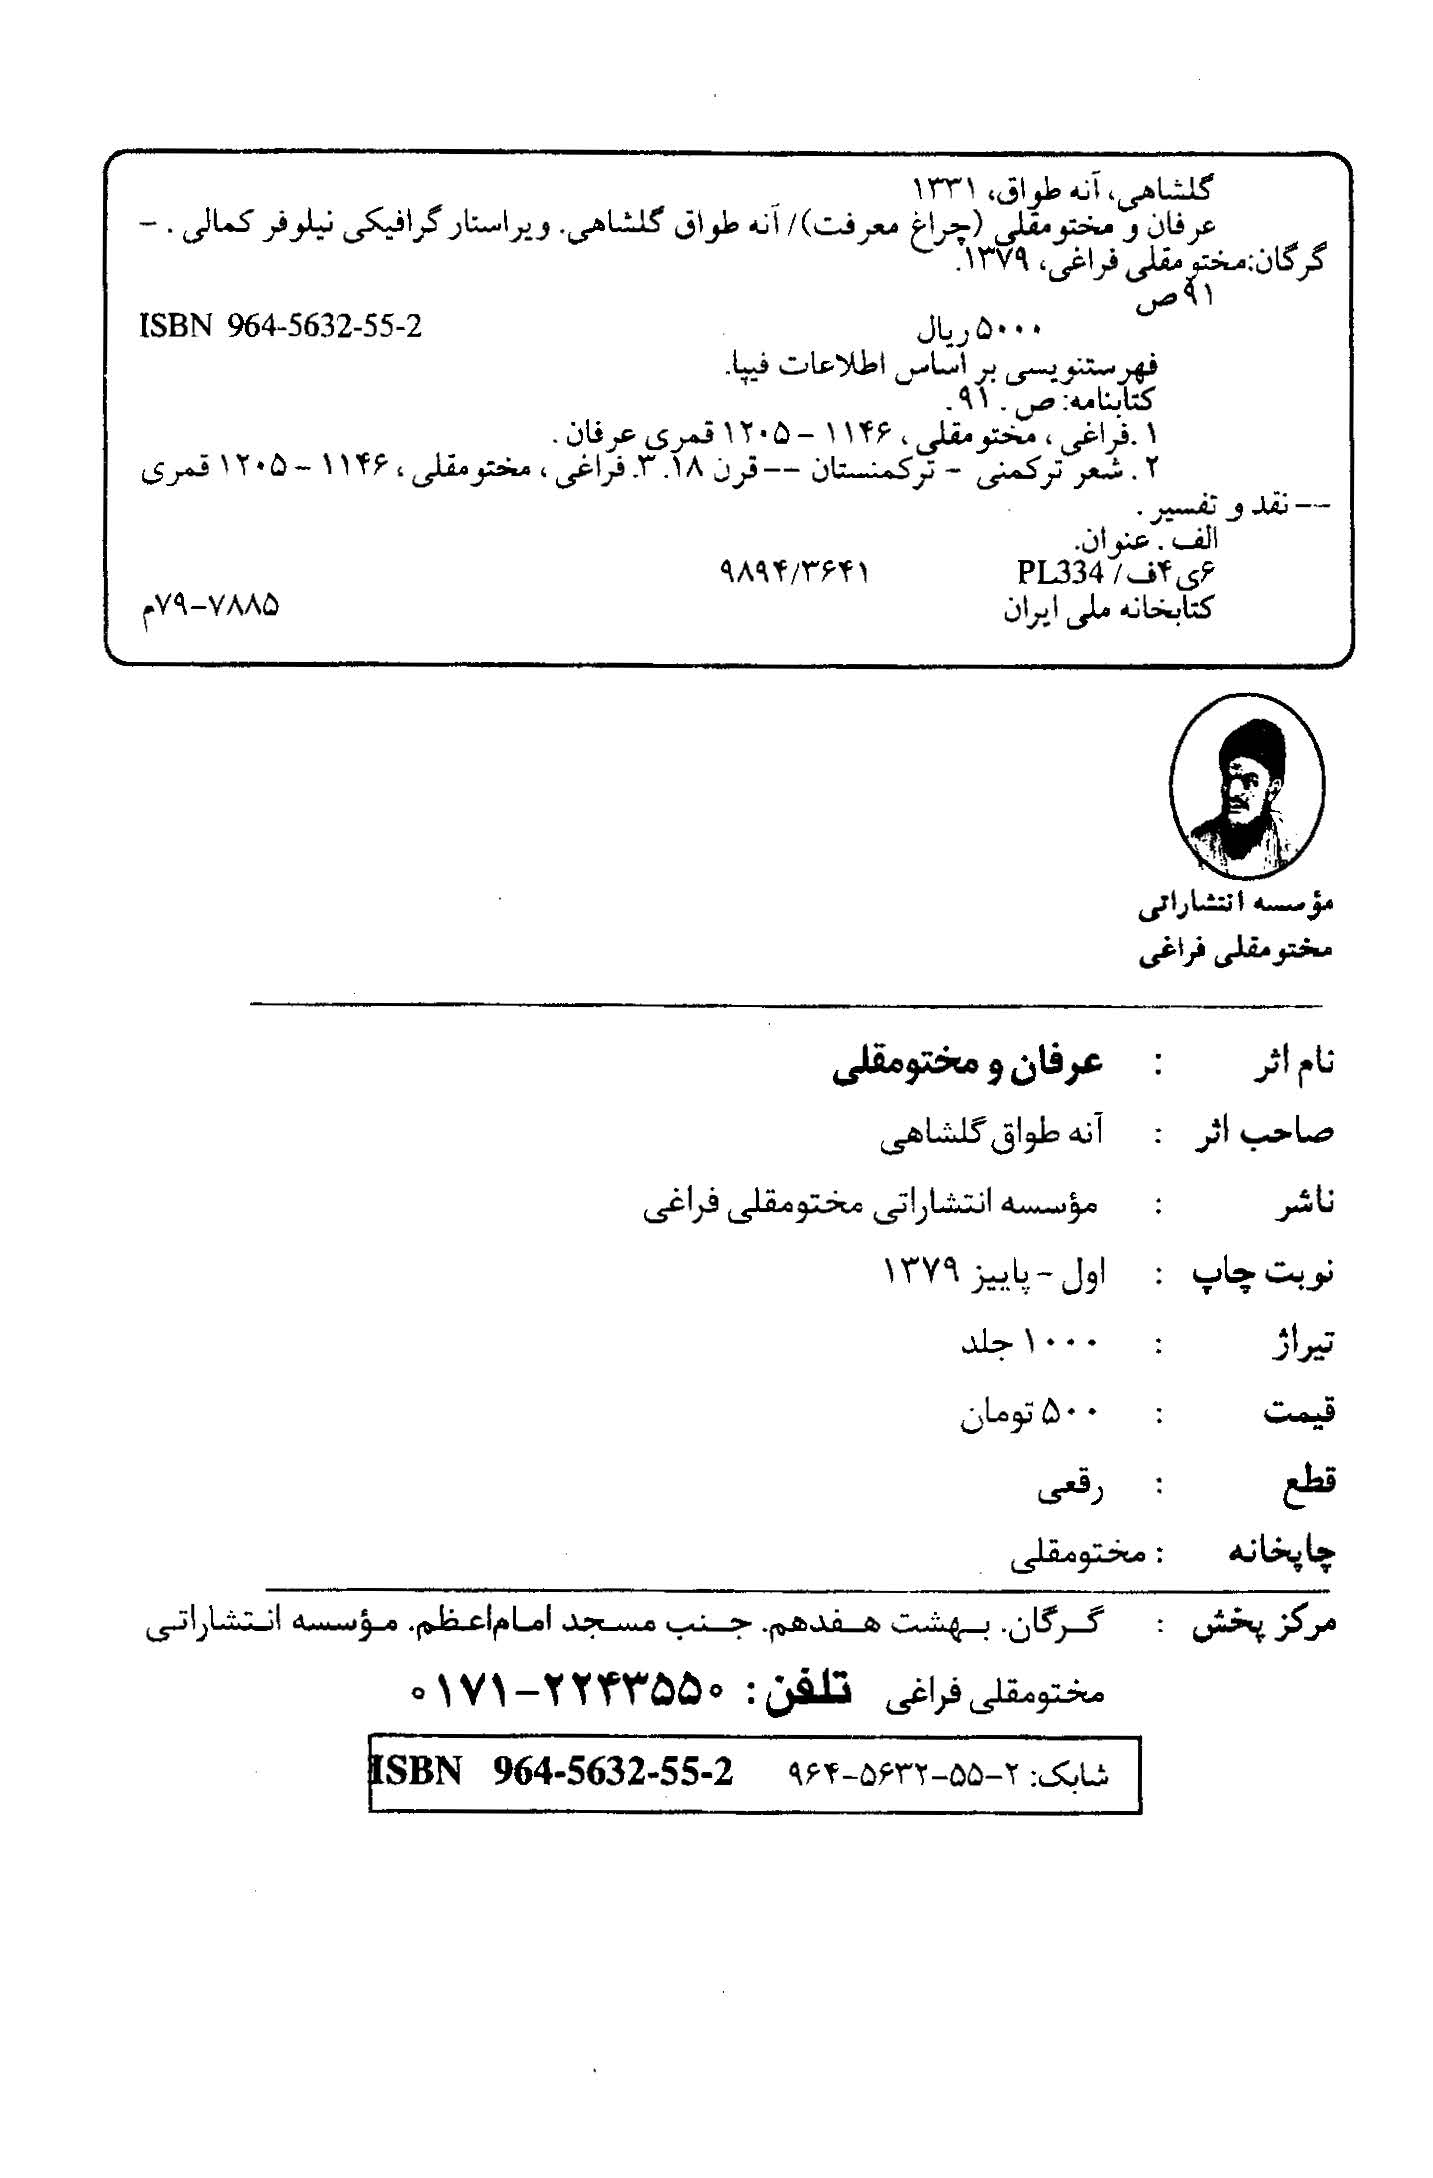 گلشاهی، آنه طواق، ۱۳۳۱
عرفان و مختومقلی (چراغ معرفت)/ آنه طواق گلشاهی. ویراستار گرافیکی نیلوفر کمالی . -
گرگان:مختومقلی فراغی، ۱۳۷۹.
۹۱ص
۵۰۰۰ ریال ISBN 964-5632-55-2
فهرستنویسی بر اساس اطلاعات فیپا.
کتابنامه: ص . ۹۱.
۱ .فراغی ، مختومقلی ، ۱۱۴۶ - ۱۲۰۵ قمری عرفان .
۲ . شعر ترکمنی - ترکمنستان -- قرن ۱۸. ۳. فراغی ، مختومقلی ، ۱۱۴۶ - ۱۲۰۵ قمری
-- نقد و تفسیر .
الف . عنوان.
۶ی۴ف/ PL334 ۹۸۹۴/۳۶۴۱
کتابخانه ملی ایران ۷۸۸۵-۷۹م
مؤسسه انتشاراتی
مختومقلی فراغی
نام اثر : عرفان و مختومقلی
صاحب اثر : آنه طواق گلشاهی
ناشر : مؤسسه انتشاراتی مختومقلی فراغی
نوبت چاپ : اول - پاییز ۱۳۷۹
تیراژ : ۱۰۰۰ جلد
قیمت : ۵۰۰ تومان
قطع : رقعی
چاپخانه : مختومقلی
مرکز پخش : گرگان. بهشت هفدهم. جنب مسجد امام‌اعظم. مؤسسه انتشاراتی
مختومقلی فراغی تلفن : ۲۲۴۳۵۵۰-۰۱۷۱
شابک: ۲-۵۵-۵۶۳۲-۹۶۴ ISBN 964-5632-55-2